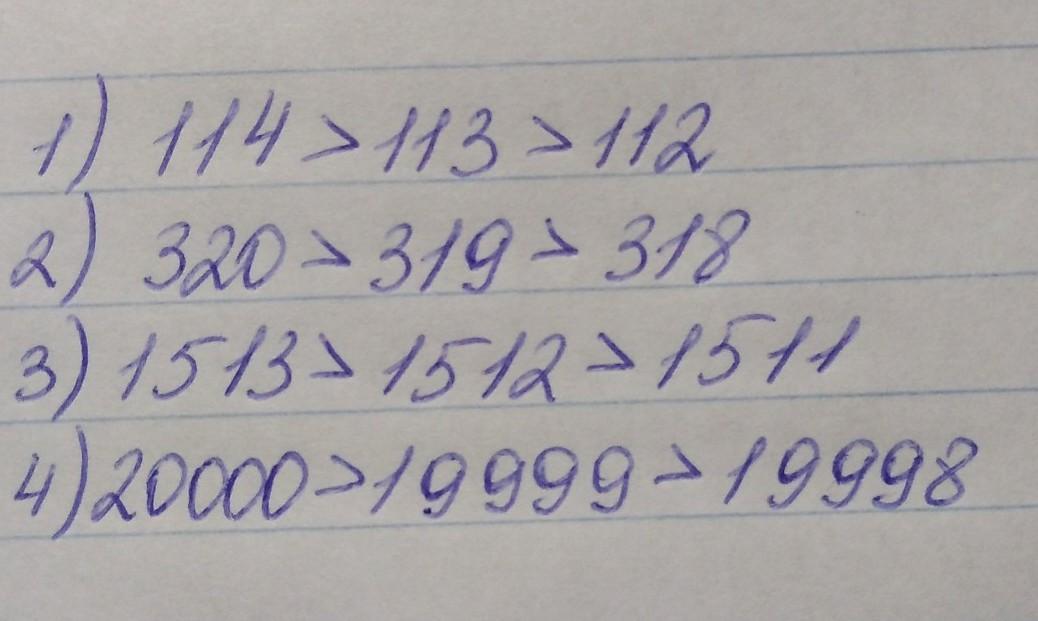 1) 114 > 113 > 112
2) 320 > 319 > 318
3) 1513 > 1512 > 1511
4) 20000 > 19999 > 19998